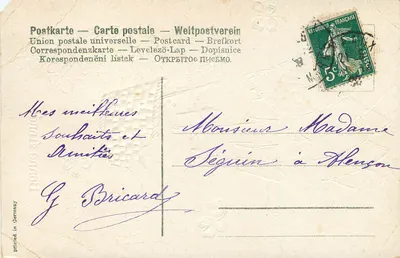 Postkarte — Carte postale — Weltpostverein
Union postale universelle — Postcard — Brefkort
Correspondenzkarte — Levelező-Lap — Dopisnice
Korespondenční lístek — Открытое письмо.
RÉPUBLIQUE FRANÇAISE
5c
Mes meilleures
souhaits et
Amitiés
G Bricard
Monsieur Madame
Séguin à Alençon
printed in Germany